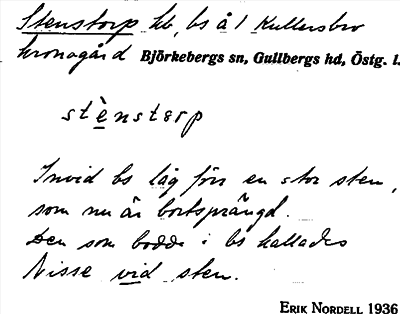 Stenstorp hb, bs å 1 Kullersbro
kronogård Björkebergs sn, Gullbergs hd, Östg. l.
stè̱nstɔrp
Invid bs låg förr en stor sten,
som nu är bortsprängd.
Den som bodde i bs kallades
Nisse vid sten.
ERIK NORDELL 1936